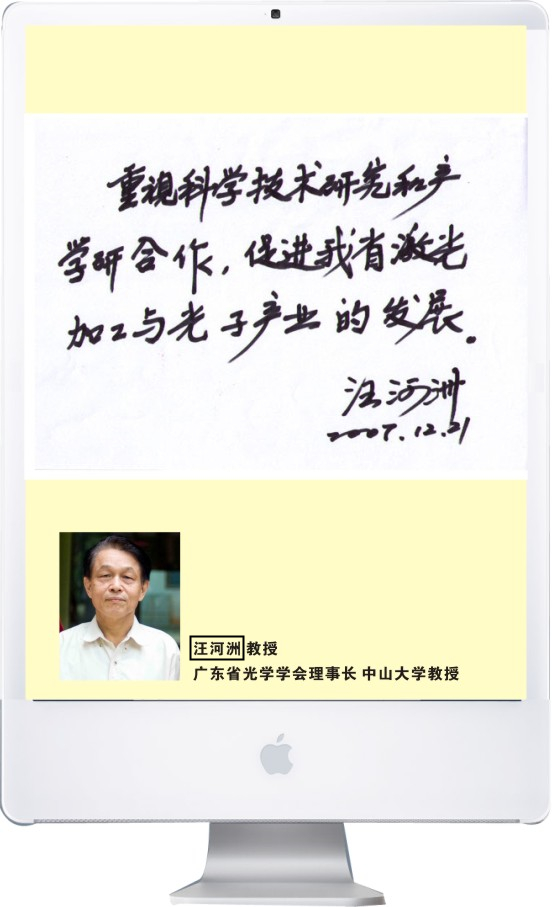 重视科学技术研究和产
学研合作，促进我省激光
加工与光子产业的发展。
汪河洲
2007.12.21
汪河洲 教授
广东省光学学会理事长 中山大学教授